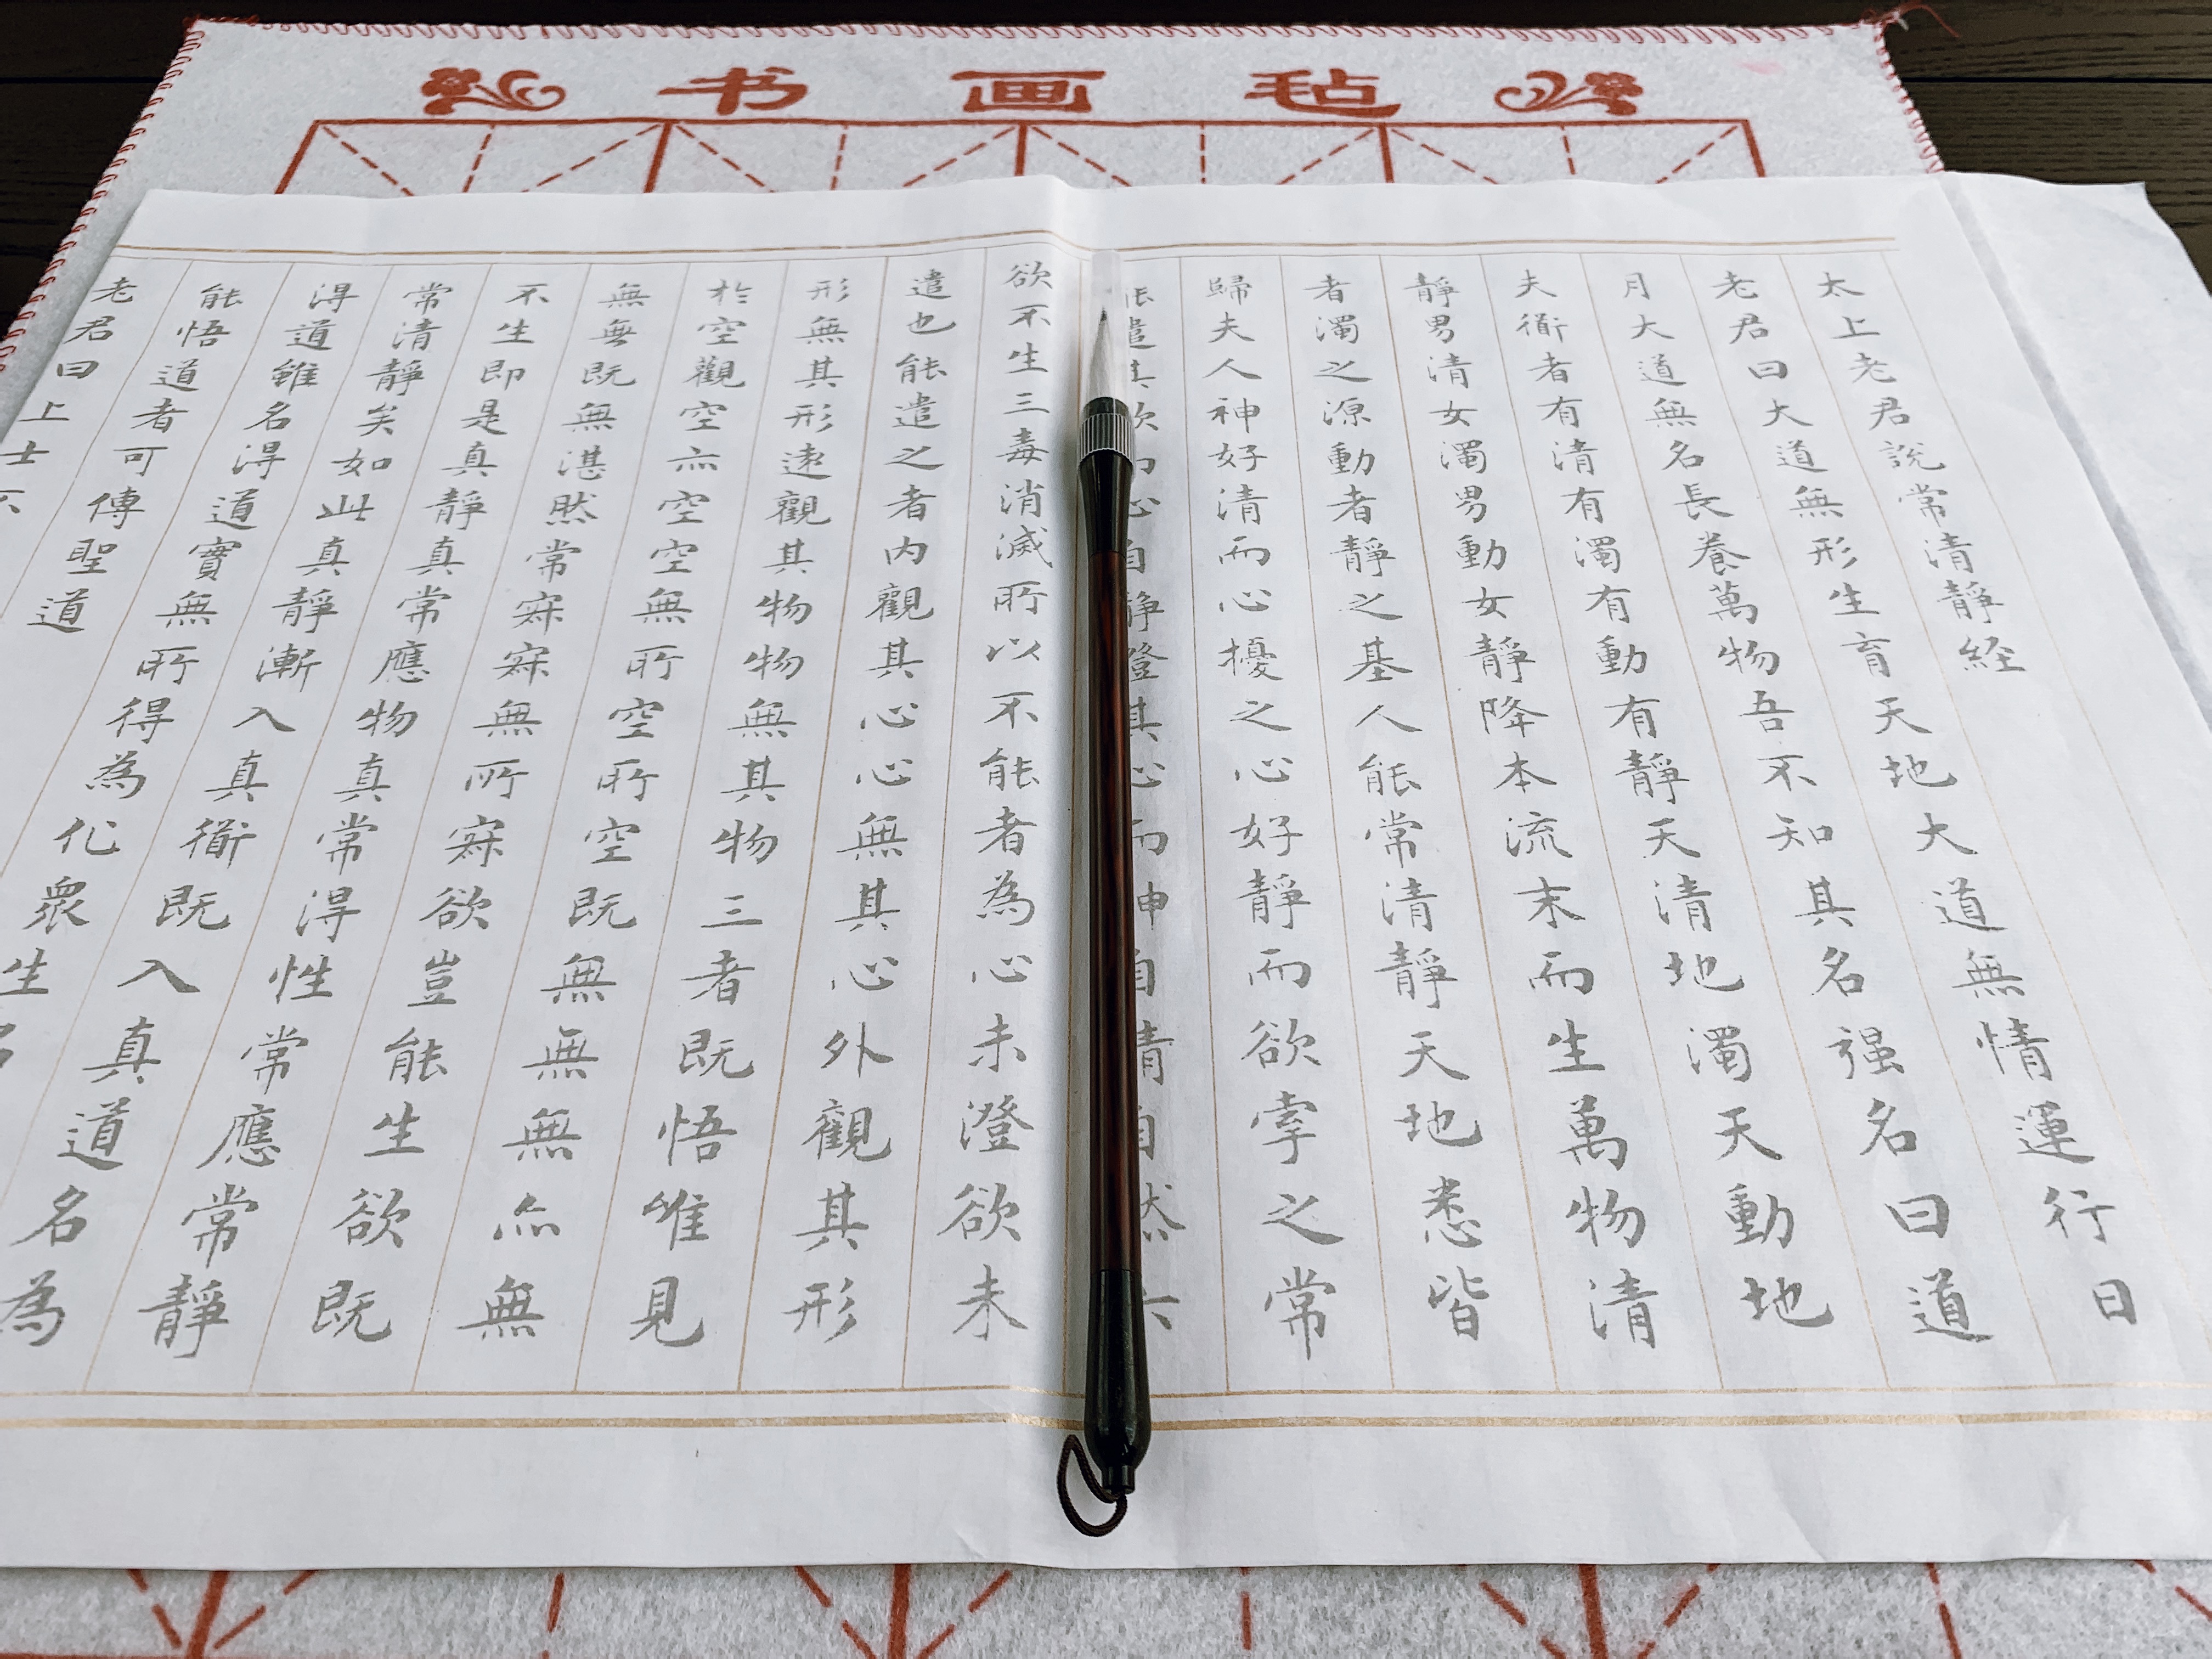 书画毡
太上老君説常清靜経
老君曰大道無形生育天地大道無情運行日
月大道無名長養萬物吾不知其名强名曰道
夫衜者有清有濁有動有靜天清地濁天動地
靜男清女濁男動女靜降本流末而生萬物清
者濁之源動者靜之基人能常清靜天地悉皆
歸夫人神好清而心擾之心好靜而欲牽之常
能遣其欲而心自静澄其心而神自清自然六
欲不生三毒消滅所以不能者為心未澄欲未
遣也能遣之者内觀其心心無其心外觀其形
形無其形遠觀其物物無其物三者既悟唯見
於空觀空亦空空無所空所空既無無無亦無
無無既無湛然常寂寂無所寂欲豈能生欲既
不生即是真靜真常應物真常得性常應常靜
常清靜矣如此真靜漸入真衜既入真道名為
得道雖名得道實無所得為化衆生
能悟道者可傳聖道
老君曰上士